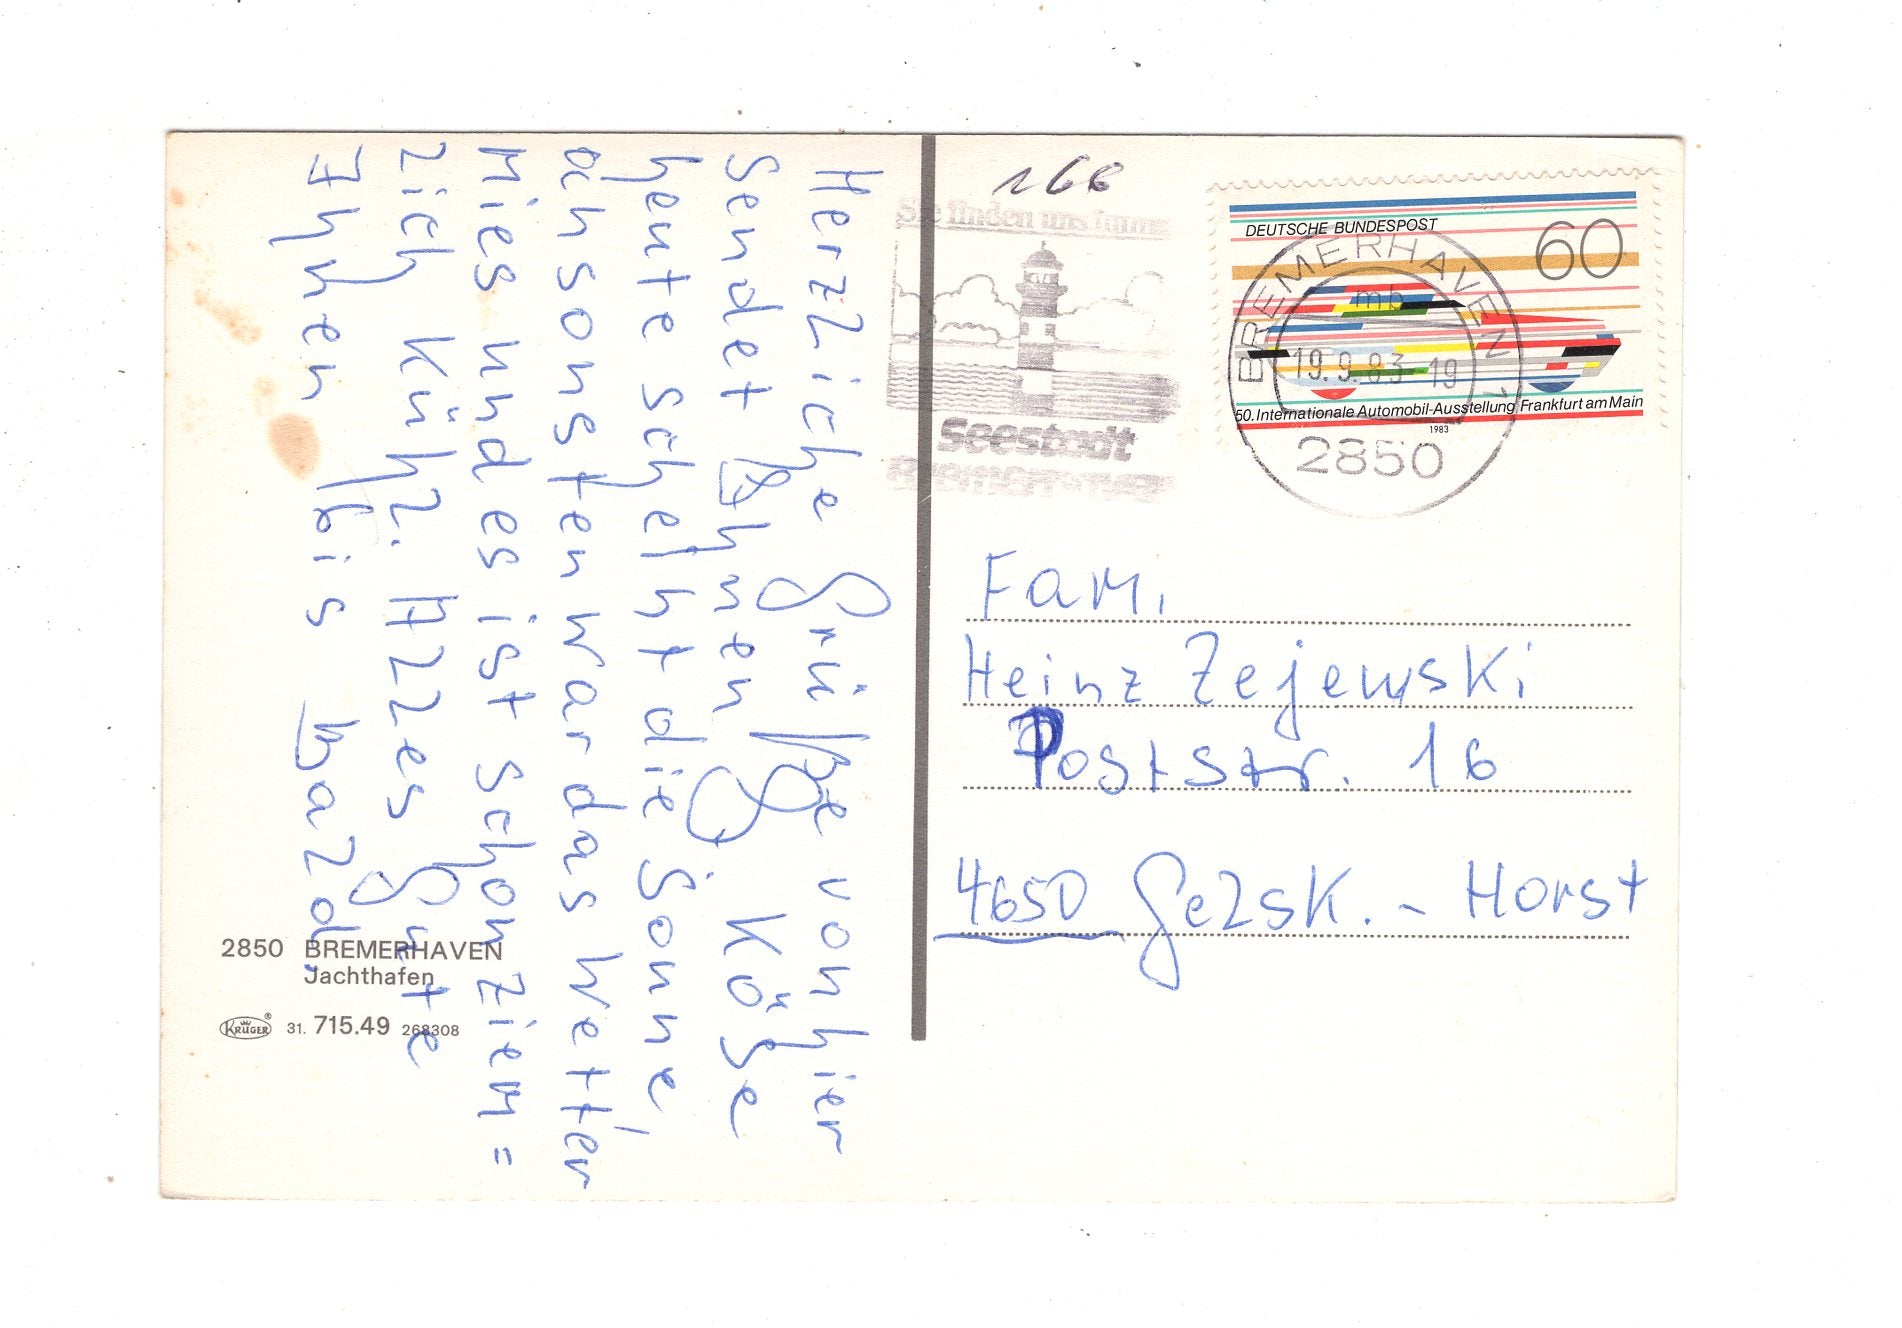 Herzliche Grüße von hier
sendet Ihnen G. Köße
heute scheint die Sonne,
ansonsten war das Wetter
mies und es ist schon ziem=
lich kühl. Alles Gute
Ihnen bis bald.
2850 BREMERHAVEN
Jachthafen
KRÜGER® 31. 715.49 268308
166
Sie finden uns immer
Seestadt
Bremerhaven
DEUTSCHE BUNDESPOST
60
50. Internationale Automobil-Ausstellung Frankfurt am Main
1983
BREMERHAVEN 1
mb
19.9.83-19
2850
Fam.
Heinz Zejewski
Poststr. 16
4650 Gelsk. - Horst